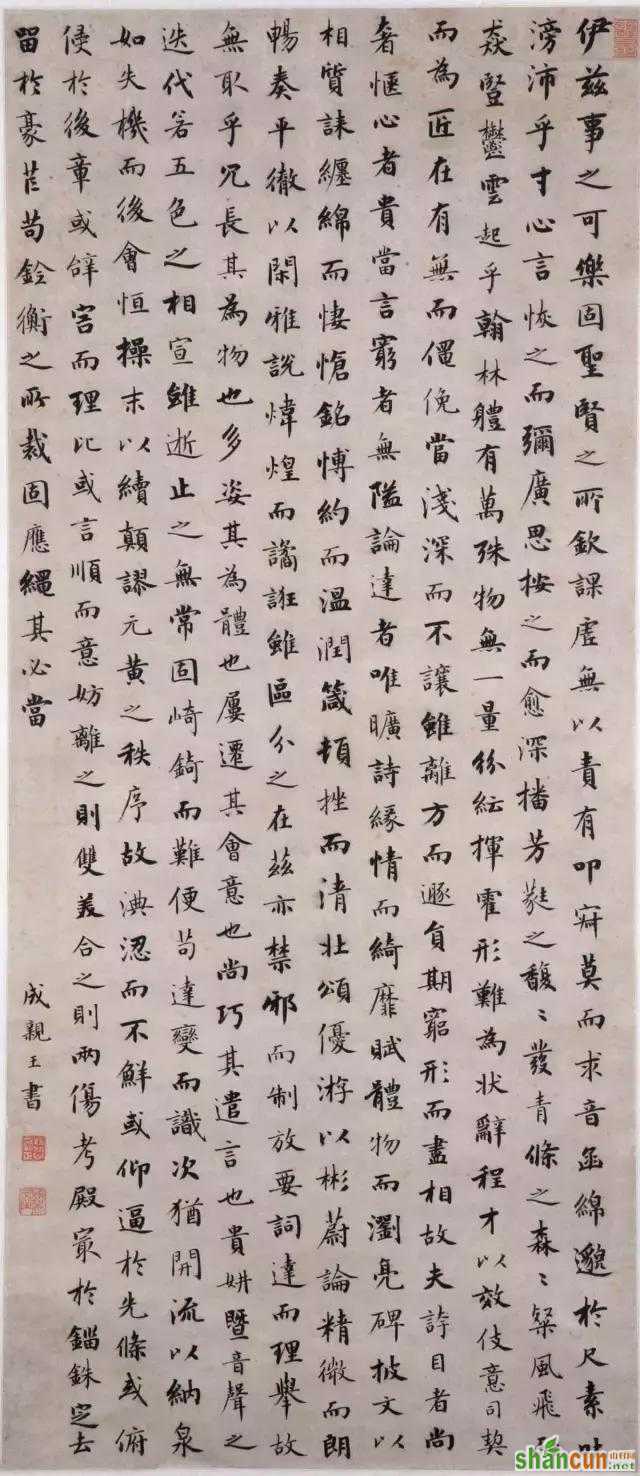 伊茲事之可樂固聖賢之所欽課虛無以責有叩寂莫而求音函綿邈於尺素吐
滂沛乎寸心言恢之而彌廣思按之而愈深播芳蕤之馥〻發青條之森〻粲風飛而
猋豎鬱雲起乎翰林體有萬殊物無一量紛紜揮霍形難為狀辭程才以效伎意司契
而為匠在有無而僶俛當淺深而不讓雖離方而遯負期窮形而盡相故夫誇目者尚
奢愜心者貴當言窮者無隘論達者唯曠詩緣情而綺靡賦體物而瀏亮碑披文以
相質誄纏綿而悽愴銘博約而溫潤箴頓挫而清壯頌優游以彬蔚論精微而朗
暢奏平徹以閑雅說煒煌而譎誑雖區分之在茲亦禁邪而制放要詞達而理舉故
無取乎冗長其為物也多姿其為體也屢遷其會意也尚巧其遣言也貴妍暨音聲之
迭代若五色之相宣雖逝止之無常固崎錡而難便苟達變而識次猶開流以納泉
如失機而後會恒操末以續顛謬元黃之秩序故淟涊而不鮮或仰逼於先條或俯
侵於後章或辭害而理比或言順而意妨離之則雙美合之則兩傷考殿最於錙銖定去
留於豪芒苟銓衡之所裁固應繩其必當
成親王書
shancun
山村网
.net